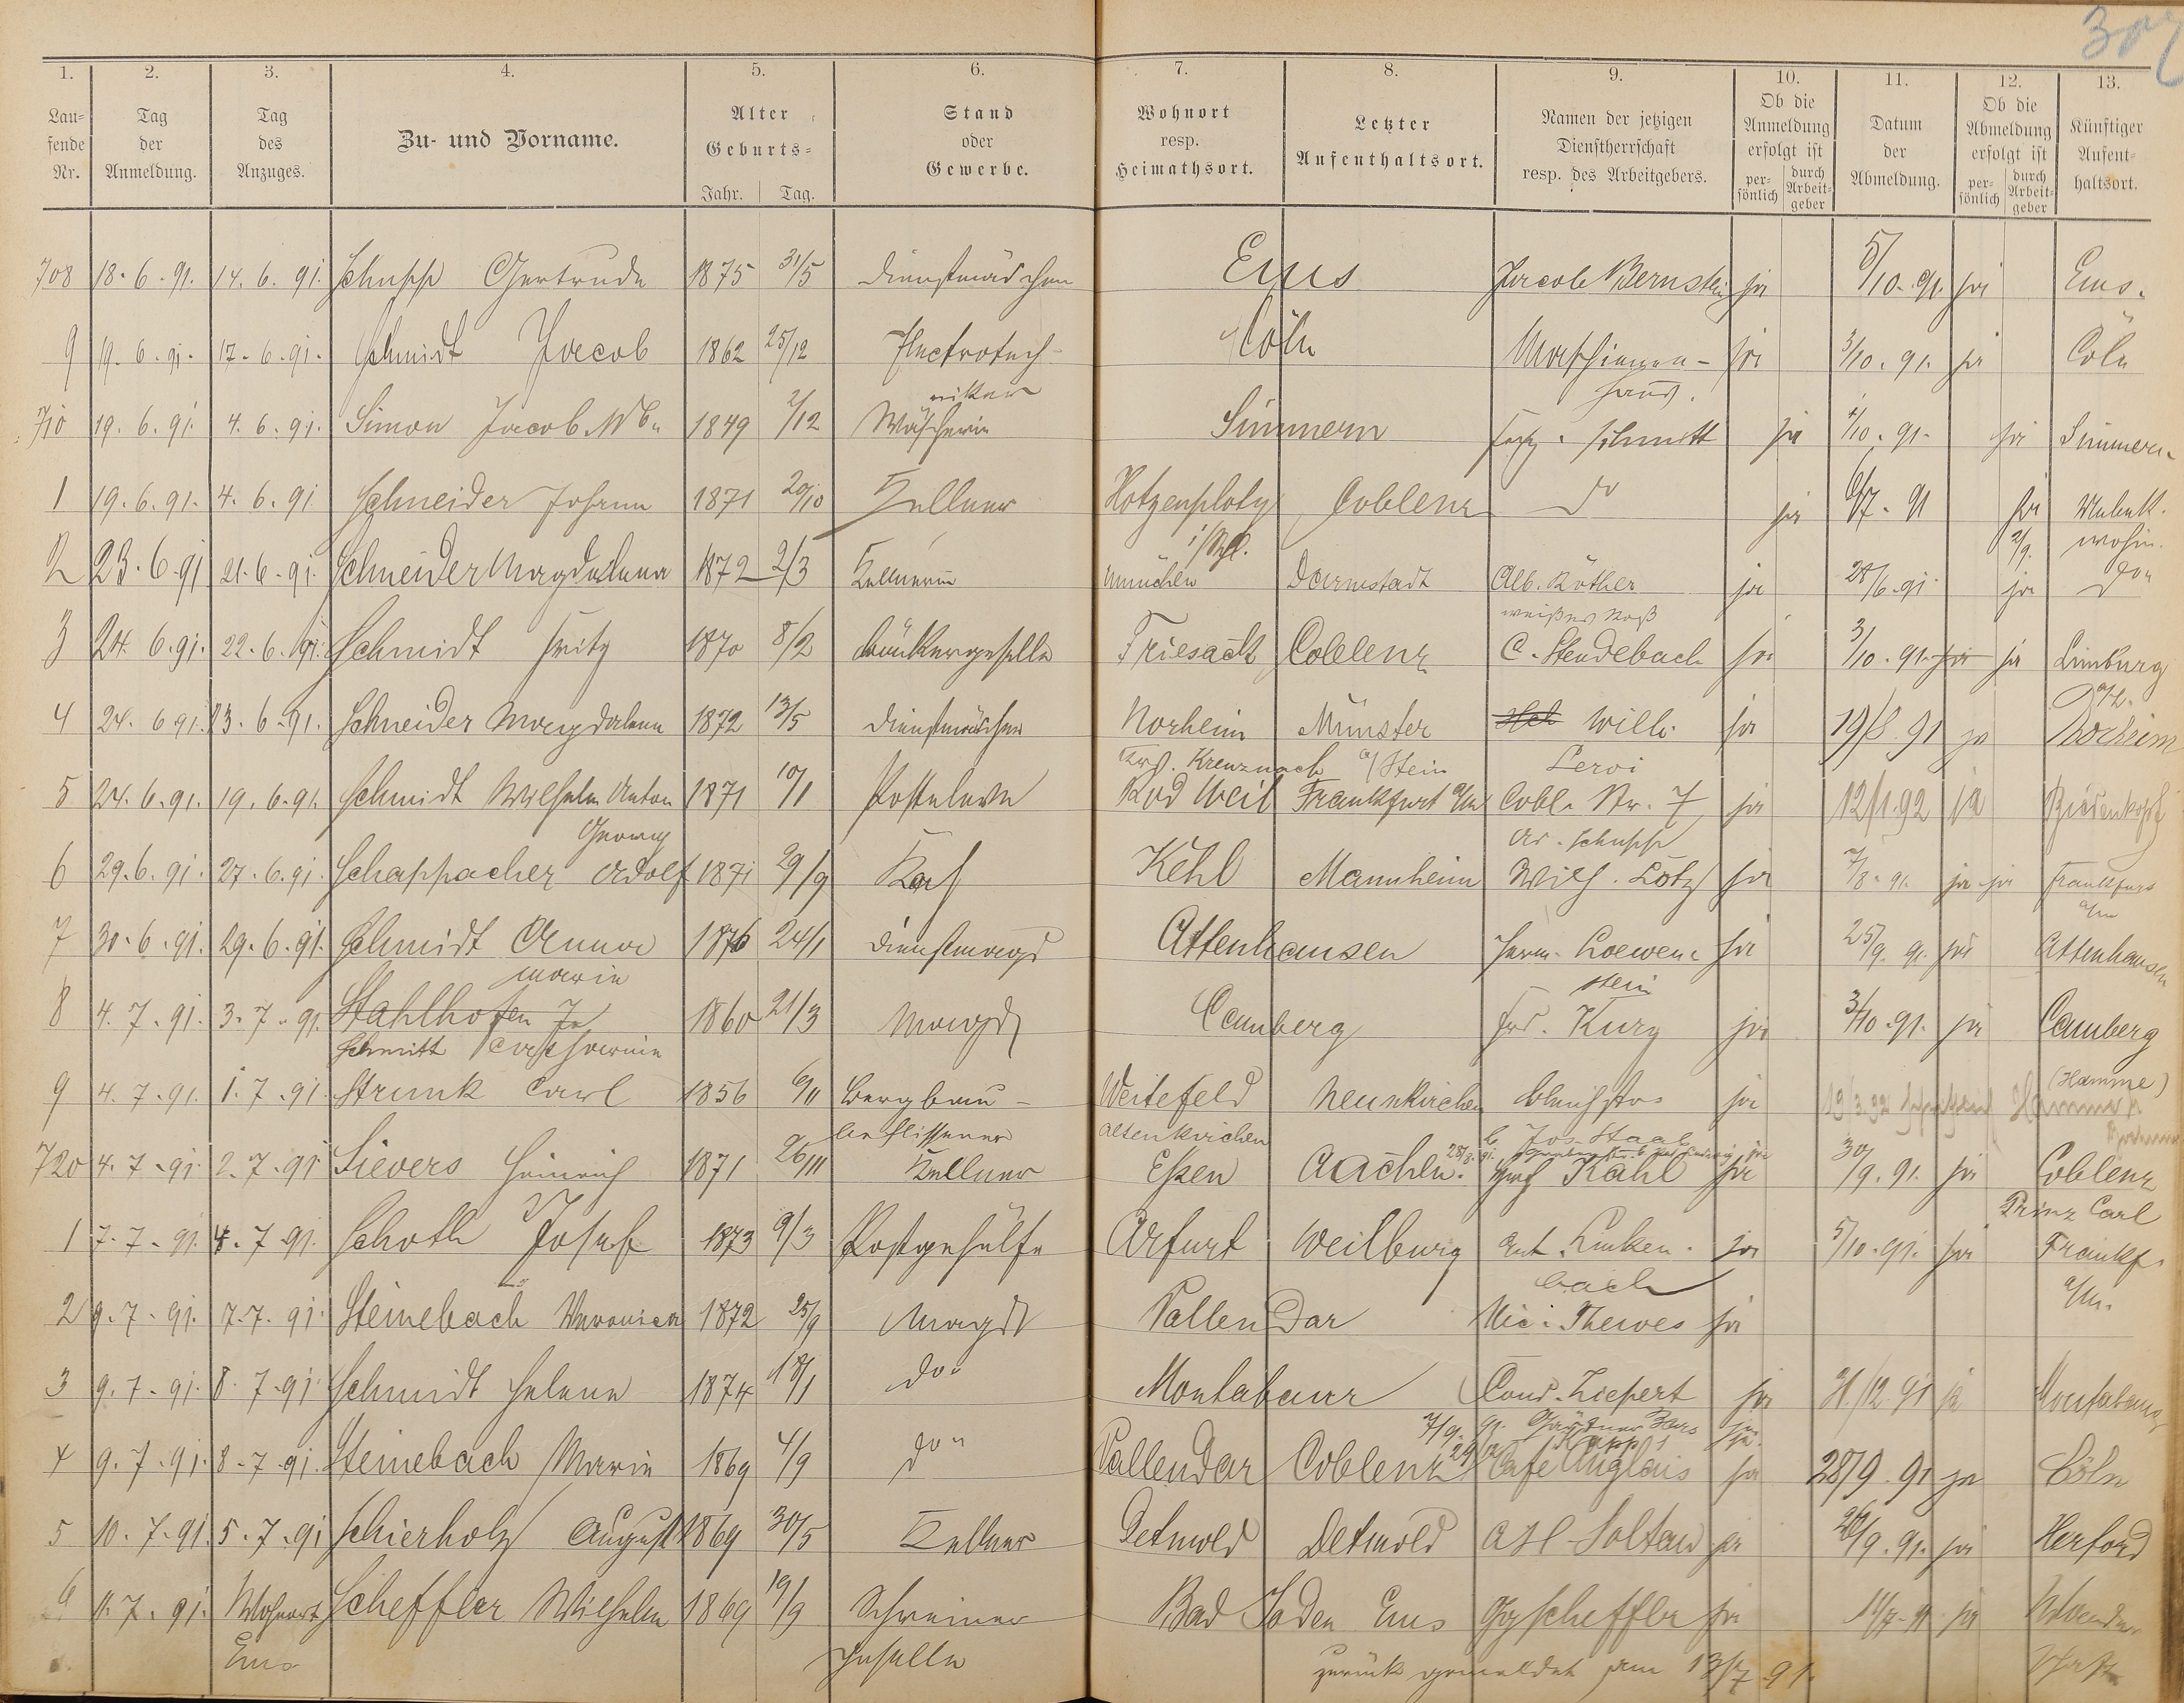 307
1. 2. 3. 4. 5. 6. 7. 8. 9. 10. 11. 12. 13.
Lau=fende Nr. Tag der Anmeldung. Tag des Anzuges. Zu- und Vorname. Alter Geburts= Jahr. Tag. Stand oder Gewerbe. Wohnort resp. Heimathsort. Letzter Aufenthaltsort. Namen der jetzigen Dienstherrschaft resp. des Arbeitgebers. Ob die Anmeldung erfolgt ist persönlich durch Arbeitgeber Datum der Abmeldung. Ob die Abmeldung erfolgt ist persönlich durch Arbeitgeber Künftiger Aufenthaltsort.
708 18. 6. 91. 14. 6. 91. Schupp Gertrude 1875 31/5 Dienstmädchen Ems Jacob Bernstein ja 5/10. 91. ja Ems.
9 19. 6. 91. 17. 6. 91. Schmidt Jacob 1862 25/12 Electrotech- Cöln Maschienen- ja 3/10. 91. ja Cöln
niker haus.
710 19. 6. 91. 4. 6. 91. Simon Jacob Wb. 1849 2/12 Wäscherin Simmern Schmitt ja 4/10. 91. ja Simmern
1 19. 6. 91. 4. 6. 91. Schneider Johann 1871 20/10 Kellner Hotzenplotz Coblenz do ja 6/7. 91 ja Unbek.
2/9. wohin.
2 23. 6. 91 21. 6. 91. Schneider Magdalena 1872 2/3 Kellnerin München Darmstadt Alb. Röther ja 28/6. 91. ja do
weißes Roß
3 24. 6. 91. 22. 6. 91. Schmidt Fritz 1870 8/2 Bäckergeselle Friesack Coblenz C. Stendebach ja 3/10. 91. ja ja Limburg
a/L.
4 24. 6 91. 23. 6. 91. Schneider Magdalena 1872 13/5 Dienstmädchen Norheim Münster Will. ja 19/8. 91 ja Norheim
Krs. Kreuznach a/Stein Levi
5 24. 6. 91. 19. 6. 91. Schmidt Wilhelm Anton 1871 10/1 Posteleve Rod Weil Frankfurt a/M Cobl. Str. 7 ja 12/1. 92 ja Biedenkopf
Georg Ad. Schupp
6 29. 6. 91. 27. 6. 91. Schappacher Adolf 1871 29/9 Koch Kehl Mannheim Wilh. Lotz ja 7/8. 91. ja ja Frankfurt
a/m
7 30. 6. 91. 29. 6. 91. Schmidt Anna 1876 24/1 Dienstmagd Attenhausen Herm. Loewen- ja 25/9. 91. ja Attenhausen
Marie stein
8 4. 7. 91. 3. 7. 91. Stahlhofen 1860 21/3 Magd Camberg Frd. Kurz ja 3/10. 91. ja Camberg
Schmitt Catharina
9 4. 7. 91. 1. 7. 91. Strunk Carl 1856 6/11 Bergbau- Weitefeld Neunkirchen ja 19/3. 92 (Hamme)
beflissener Altenkirchen Jos. Staab
720 4. 7. 91. 2. 7. 91 Sievers Heinrich 1871 26/11 Kellner Essen Aachen. Kahl ja 30/9. 91. ja Coblenz
Prinz Carl
1 7. 7. 91. 4. 7. 91. Schoth Josef 1873 9/3 Postgehülfe Arfurt Weilburg Ant. Linken- ja 5/10. 91. ja Frankf.
bach a/M.
2 9. 7. 91. 7. 7. 91. Steinebach Veronica 1872 25/9 Magd Vallendar Nic. Thewes ja
3 9. 7. 91. 8. 7. 91. Schmidt Helene 1874 18/1 do Montabaur Cond. Liepert ja 31/12. 91 ja Montabaur
7/9. 91. ja
4 9. 7. 91. 8. 7. 91. Steinebach Marie 1869 4/9 do Vallendar Coblenz Café Anglais ja 28/9. 91 ja Cöln
5 10. 7. 91. 5. 7. 91 Schierholz August 1869 30/5 Kellner Detmold Detmold Soltau ja 26/9. 91. ja Herford
6 11. 7. 91. Wohnort Scheffler Wilhelm 1869 19/9 Schreiner Bad Soden Ems Scheffler ja 11/7. 91. ja
Ems geselle zurück gemeldet am 13/7 91.